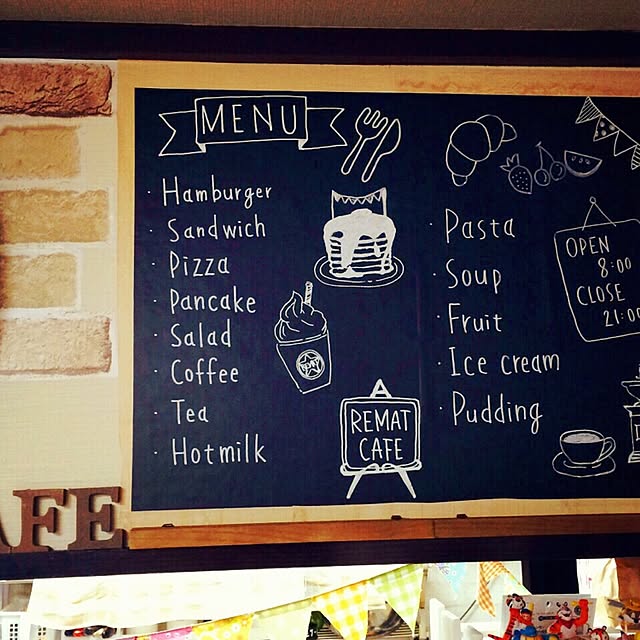 MENU
· Hamburger
· Sandwich
· Pizza
· Pancake
· Salad
· Coffee
· Tea
· Hotmilk
REMAT
CAFE
· Pasta
· Soup
· Fruit
· Ice cream
· Pudding
OPEN
8:00
CLOSE
21:00
AFE